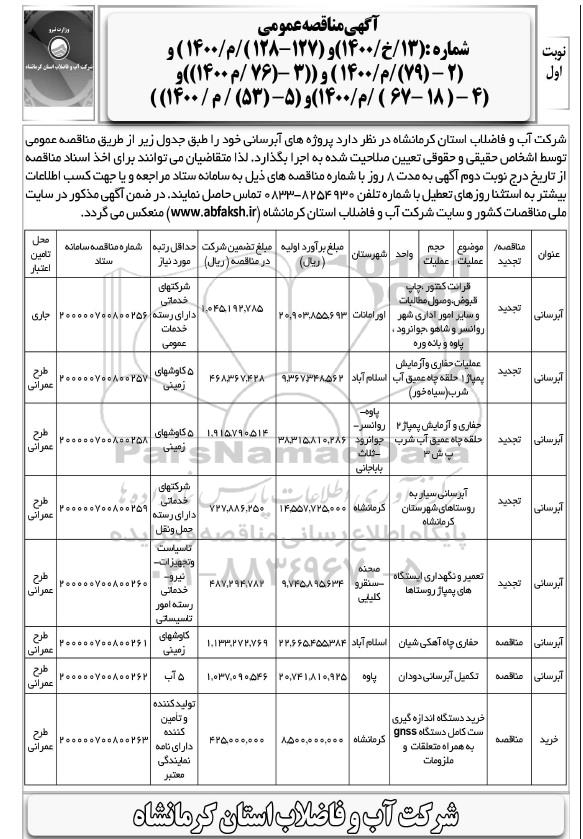 آگهی مناقصه عمومی
شماره :(۱۳/خ/۱۴۰۰)و (۱۲۷-۱۲۸ )/م/۱۴۰۰ ) و
(۲ - (۷۹)/م/۱۴۰۰ ) و ((۳ -(۷۶ /م ۱۴۰۰))و
(۴ - ( ۱۸ -۶۷ ) /م/۱۴۰۰)و (۵- (۵۳) / م / ۱۴۰۰) )
نوبت
اول
وزارت نیرو
شرکت آب و فاضلاب استان کرمانشاه
شرکت آب و فاضلاب استان کرمانشاه در نظر دارد پروژه های آبرسانی خود را طبق جدول زیر از طریق مناقصه عمومی
توسط اشخاص حقیقی و حقوقی تعیین صلاحیت شده به اجرا بگذارد. لذا متقاضیان می توانند برای اخذ اسناد مناقصه
از تاریخ درج نوبت دوم آگهی به مدت ۸ روز با شماره مناقصه های ذیل به سامانه ستاد مراجعه و یا جهت کسب اطلاعات
بیشتر به استثنا روزهای تعطیل با شماره تلفن ۸۲۵۴۹۳۰-۰۸۳۳ تماس حاصل نمایند. در ضمن آگهی مذکور در سایت
ملی مناقصات کشور و سایت شرکت آب و فاضلاب استان کرمانشاه (www.abfaksh.ir) منعکس می گردد.
عنوان مناقصه/ تجدید موضوع عملیات حجم عملیات واحد شهرستان مبلغ برآورد اولیه (ریال) مبلغ تضمین شرکت در مناقصه (ریال) حداقل رتبه مورد نیاز شماره مناقصه سامانه ستاد محل تامین اعتبار
آبرسانی تجدید قرائت کنتور ،چاپ قبوض،وصول مطالبات و سایر امور اداری شهر روانسر و شاهو ،جوانرود ، پاوه و بانه وره اورامانات ۲۰,۹۰۳,۸۵۵,۶۹۳ ۱,۰۴۵,۱۹۲,۷۸۵ شرکتهای خدماتی دارای رسته خدمات عمومی ۲۰۰۰۰۰۷۰۰۸۰۰۲۵۶ جاری
آبرسانی تجدید عملیات حفاری وآزمایش پمپاژ ۱ حلقه چاه عمیق آب شرب(سیاه خور) اسلام آباد ۹,۳۶۷,۳۴۸,۵۶۲ ۴۶۸,۳۶۷,۴۲۸ ۵ کاوشهای زمینی ۲۰۰۰۰۰۷۰۰۸۰۰۲۵۷ طرح عمرانی
آبرسانی تجدید حفاری و آزمایش پمپاژ ۲ حلقه چاه عمیق آب شرب پ ش ۳ پاوه- روانسر- جوانرود -ثلاث باباجانی ۳۸,۳۱۵,۸۱۰,۲۸۶ ۱,۹۱۵,۷۹۰,۵۱۴ ۵ کاوشهای زمینی ۲۰۰۰۰۰۷۰۰۸۰۰۲۵۸ طرح عمرانی
آبرسانی تجدید آبرسانی سیار به روستاهای شهرستان کرمانشاه کرمانشاه ۱۴,۵۵۷,۷۲۵,۰۰۰ ۷۲۷,۸۸۶,۲۵۰ شرکتهای خدماتی دارای رسته حمل ونقل ۲۰۰۰۰۰۷۰۰۸۰۰۲۵۹ طرح عمرانی
آبرسانی تجدید تعمیر و نگهداری ایستگاه های پمپاژ روستاها صحنه -سنقرو کلیایی ۹,۷۴۵,۸۹۵,۶۳۴ ۴۸۷,۲۹۴,۷۸۲ تاسیاست وتجهیزات- نیرو- خدماتی رسته امور تاسیساتی ۲۰۰۰۰۰۷۰۰۸۰۰۲۶۰ طرح عمرانی
آبرسانی مناقصه حفاری چاه آهکی شیان اسلام آباد ۲۲,۶۶۵,۴۵۵,۳۸۴ ۱,۱۳۳,۲۷۲,۷۶۹ کاوشهای زمینی ۲۰۰۰۰۰۷۰۰۸۰۰۲۶۱ طرح عمرانی
آبرسانی مناقصه تکمیل آبرسانی دودان پاوه ۲۰,۷۴۱,۸۱۰,۹۲۵ ۱,۰۳۷,۰۹۰,۵۴۶ ۵ آب ۲۰۰۰۰۰۷۰۰۸۰۰۲۶۲ طرح عمرانی
خرید مناقصه خرید دستگاه اندازه گیری ست کامل دستگاه gnss به همراه متعلقات و ملزومات کرمانشاه ۸,۵۰۰,۰۰۰,۰۰۰ ۴۲۵,۰۰۰,۰۰۰ تولیدکننده و تأمین کننده دارای نامه نمایندگی معتبر ۲۰۰۰۰۰۷۰۰۸۰۰۲۶۳ طرح عمرانی
ParsNamadData
پایگاه اطلاع رسانی مناقصه و مزایده
۰۲۱-۸۸۳۴۹۶۷۰-۵
شرکت آب و فاضلاب استان کرمانشاه